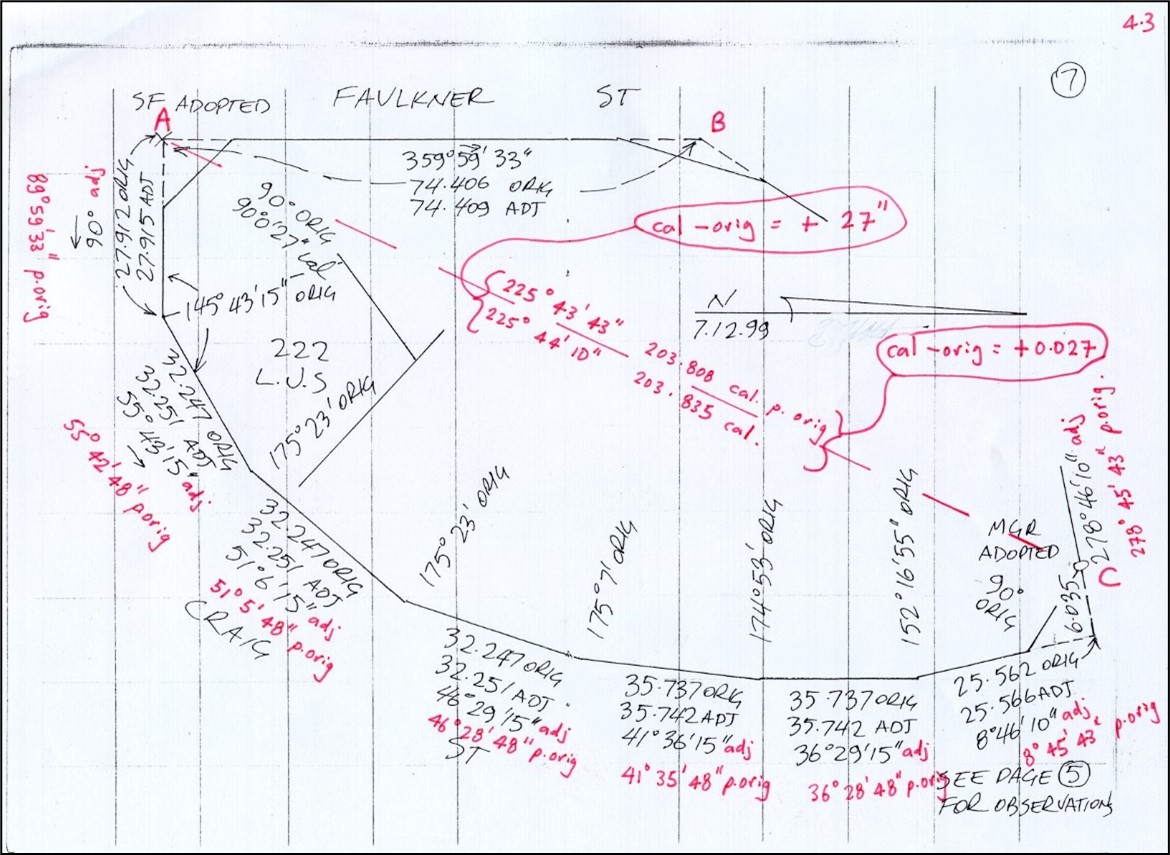 4.3
7
SF ADOPTED FAULKNER ST
A
B
359°59'33"
74.406 ORIG
74.409 ADJ
cal - orig = + 27"
89°59'33" p.orig
90° adj
27.912 ORIG
27.915 ADJ
90° ORIG
90°0'27" cal
145°43'15" ORIG
222
L.U.S
225°43'43"
225°44'10"
203.808 cal. p. orig
203.835 cal.
N
7.12.99
cal - orig = +0.027
32.247 ORIG
32.251 ADJ
55°43'15" adj
55°42'48" p.orig
175°23' ORIG
32.247 ORIG
32.251 ADJ
51°6'15" adj
51°5'48" p.orig
CRAIG
175°23' ORIG
32.247 ORIG
32.251 ADJ
46°29'15" adj
46°28'48" p.orig
ST
175°7' ORIG
35.737 ORIG
35.742 ADJ
41°36'15" adj
41°35'48" p.orig
174°53' ORIG
35.737 ORIG
35.742 ADJ
36°29'15" adj
36°28'48" p.orig
152°16'55" ORIG
25.562 ORIG
25.566 ADJ
8°46'10" adj
8°45'43" p.orig
MGR
ADOPTED
90°
ORIG
6.035
C
278°46'10" adj
278°45'43" p.orig.
SEE PAGE 5
FOR OBSERVATIONS